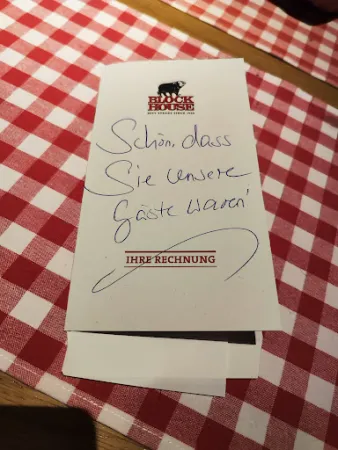 BLOCK
HOUSE
BEST STEAKS SINCE 1968
Schön, dass
Sie unsere
Gäste waren!
IHRE RECHNUNG